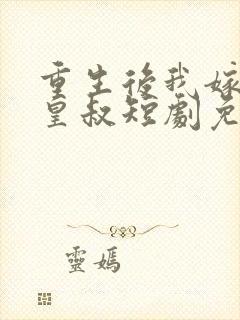 重生後我嫁
皇叔短劇免
靈媽